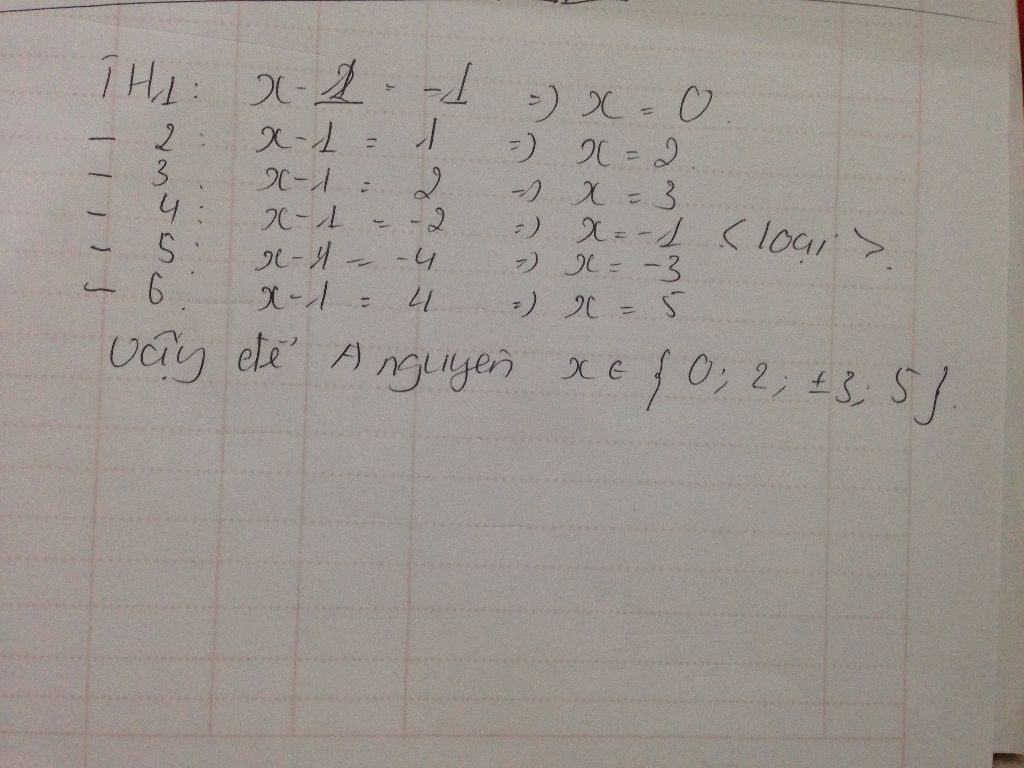 TH1: x-1 = -1 => x = 0.
- 2: x-1 = 1 => x = 2.
- 3: x-1 = 2 => x = 3
- 4: x-1 = -2 => x = -1 <loại>.
- 5: x-1 = -4 => x = -3
- 6: x-1 = 4 => x = 5
Vậy để A nguyên x ∈ {0; 2; ±3; 5}.